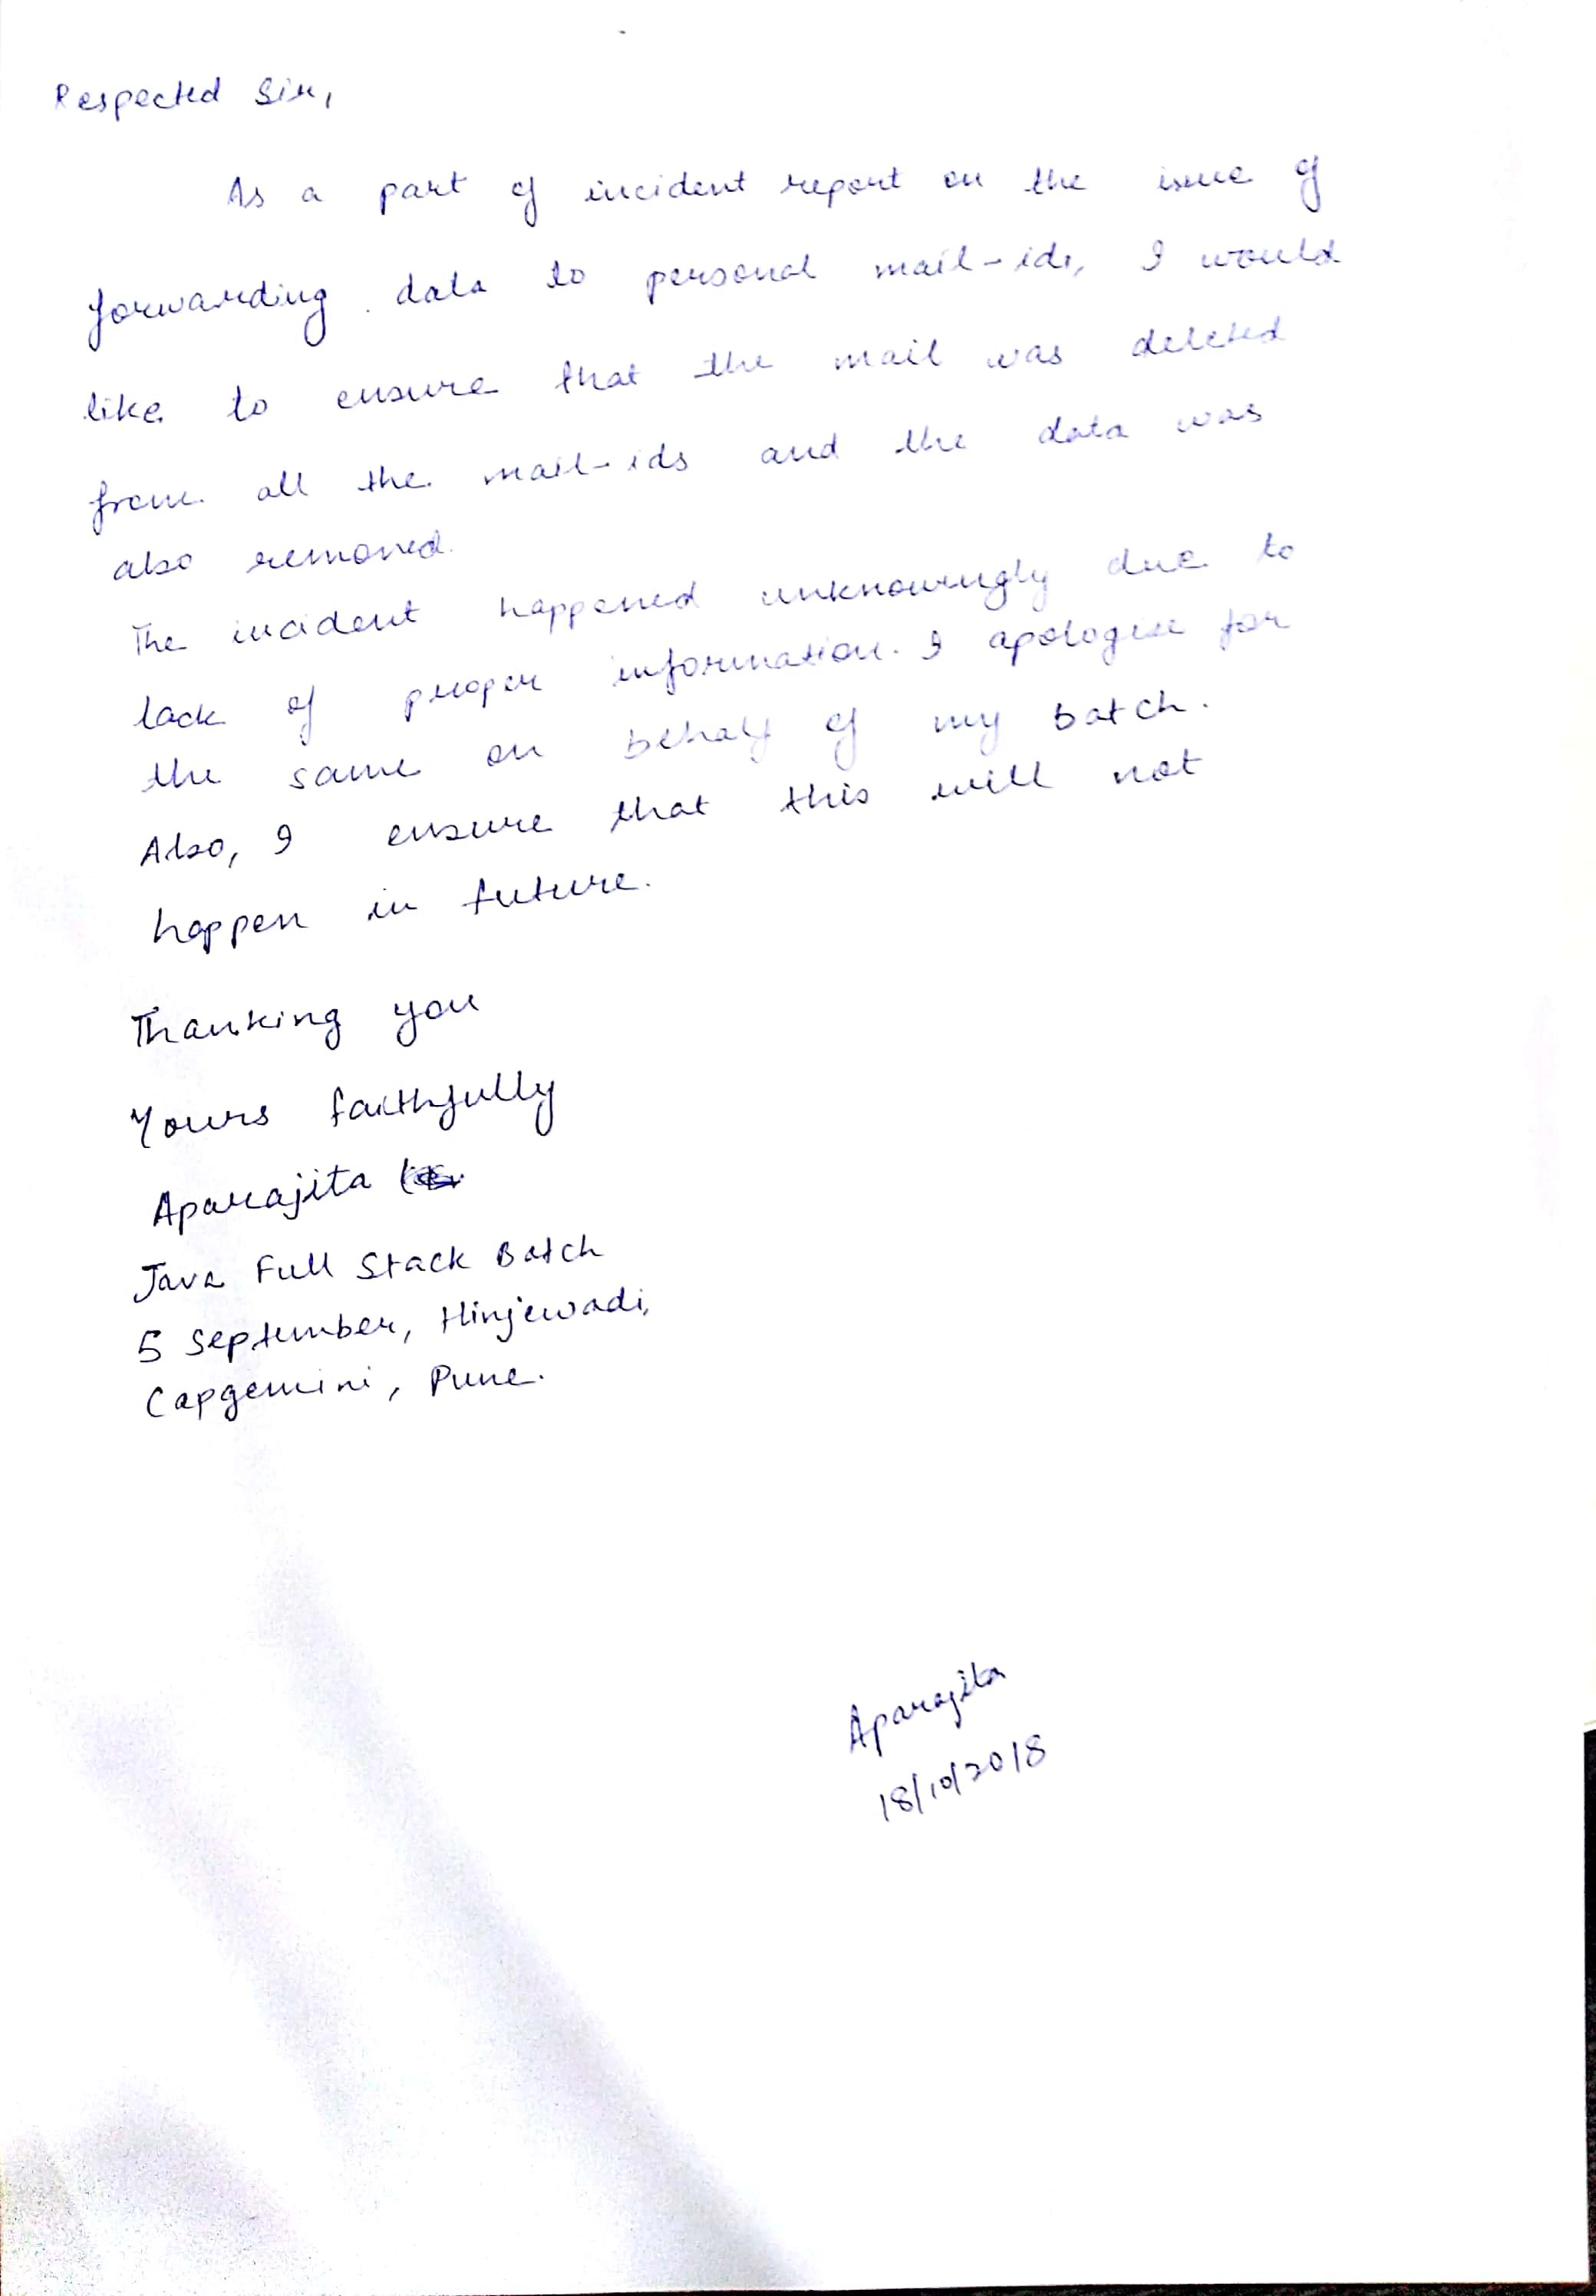 Respected Sir,
As a part of incident report on the issue of
forwarding data to personal mail-ids, I would
like to ensure that the mail was deleted
from all the mail-ids and the data was
also removed.
The incident happened unknowingly due to
lack of proper information. I apologise for
the same on behalf of my batch.
Also, I ensure that this will not
happen in future.
Thanking you
Yours faithfully
Aparajita
Java Full Stack Batch
5 September, Hinjewadi,
Capgemini, Pune.
Aparajita
18/10/2018